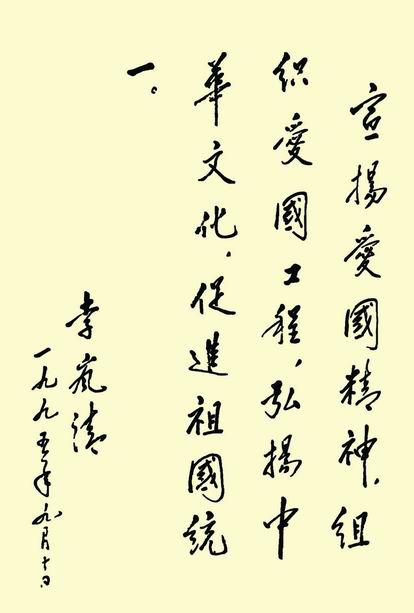 宣揚愛國精神，組
織愛國工程，弘揚中
華文化，促進祖國統
一。
李嵐清
一九九五年九月十日